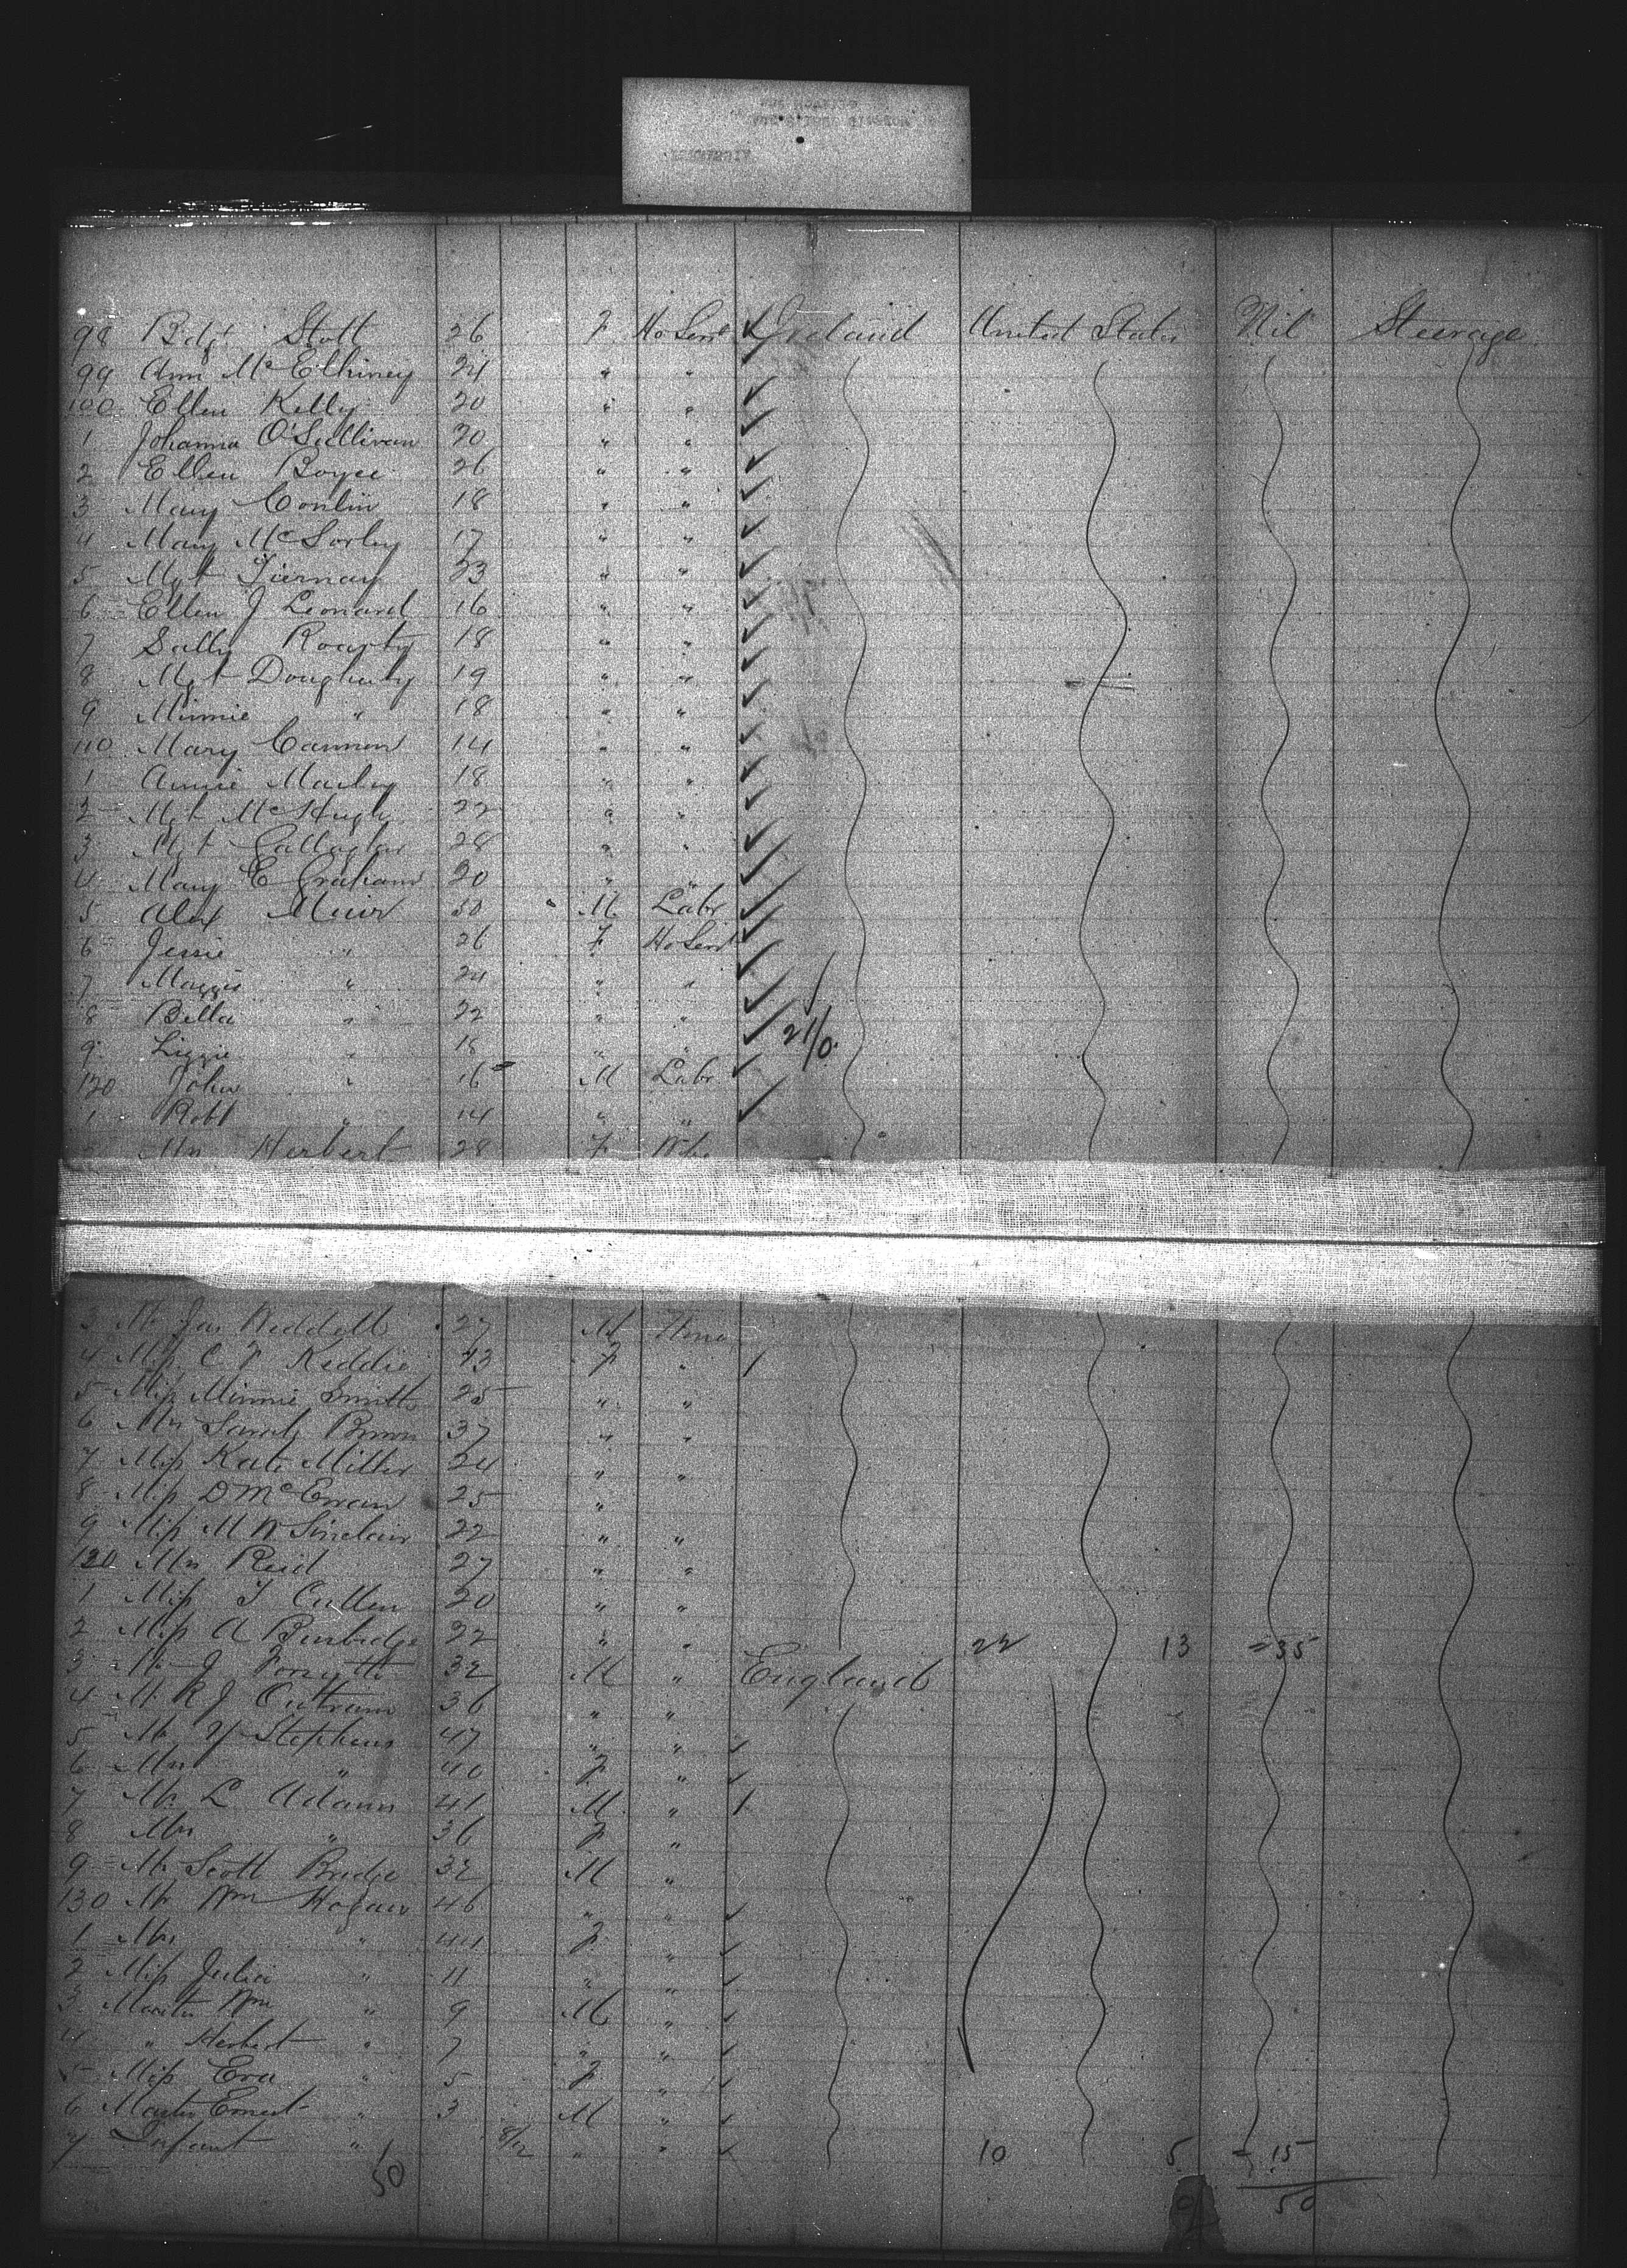 98 Bdgt Stott 26 F Ho Servt ✓ Ireland United States Nil Steerage
99 Ann McElhiney 24 " " ✓
100 Ellen Kelly 20 " " ✓
1 Johanna O'Sullivan 20 " " ✓
2 Ellen Boyce 26 " " ✓
3 Mary Conlin 18 " " ✓
4 Mary McSorley 17 " " ✓
5 Mgt Tiernay 23 " " ✓
6 Ellen J Leonard 16 " " ✓
7 Sally Roarty 18 " " ✓
8 Mgt Dougherty 19 " " ✓
9 Minnie " 18 " " ✓
110 Mary Cannon 14 " " ✓
1 Annie Marley 18 " " ✓
2 Mgt McHugh 22 " " ✓
3 Mgt Gallagher 28 " " ✓
4 Mary E Graham 20 " " ✓
5 Alex Muir 50 M Labr ✓
6 Jessie " 26 F Ho Servt ✓
7 Maggie " 24 " " ✓
8 Bella " 22 " " ✓
9 Lizzie " 18 " " ✓ 21/0
120 John " 16 M Labr ✓
1 Robt " 14 " " ✓
2 Mrs Herbert 28 F Wife
3 Mr Jas 27 M
4 Miss C F Keddie 43 F "
5 Miss Minnie Smith 25 " "
6 Mrs Sarah Brown 37 " "
7 Miss Kate Miller 24 " "
8 Miss D McEwan 25 "
9 Miss M W Sinclair 22 " "
120 Mrs Reid 27 " "
1 Miss J Cullen 20 " "
2 Miss A Burbidge 22 " " 22 13 =35
3 Mr J Forsyth 32 M " England
4 Mr R J Outram 36 " "
5 Mr Y Stephens 47 " " ✓
6 Mrs " 40 F " ✓
7 Mr L Adams 41 M "
8 Mrs " 36 F "
9 Mr Scott Bridge 32 M "
130 Mr Wm Hogan 46 " " ✓
1 Mrs " 44 F " ✓
2 Miss Julia " 11 " " ✓
3 Master Wm " 9 M " ✓
4 " Herbert " 7 " " ✓
5 Miss Eva " 5 F " ✓
6 Master Ernest " 3 M " ✓
7 Infant " 8/12 " " ✓ 10 5 = 15
50 50